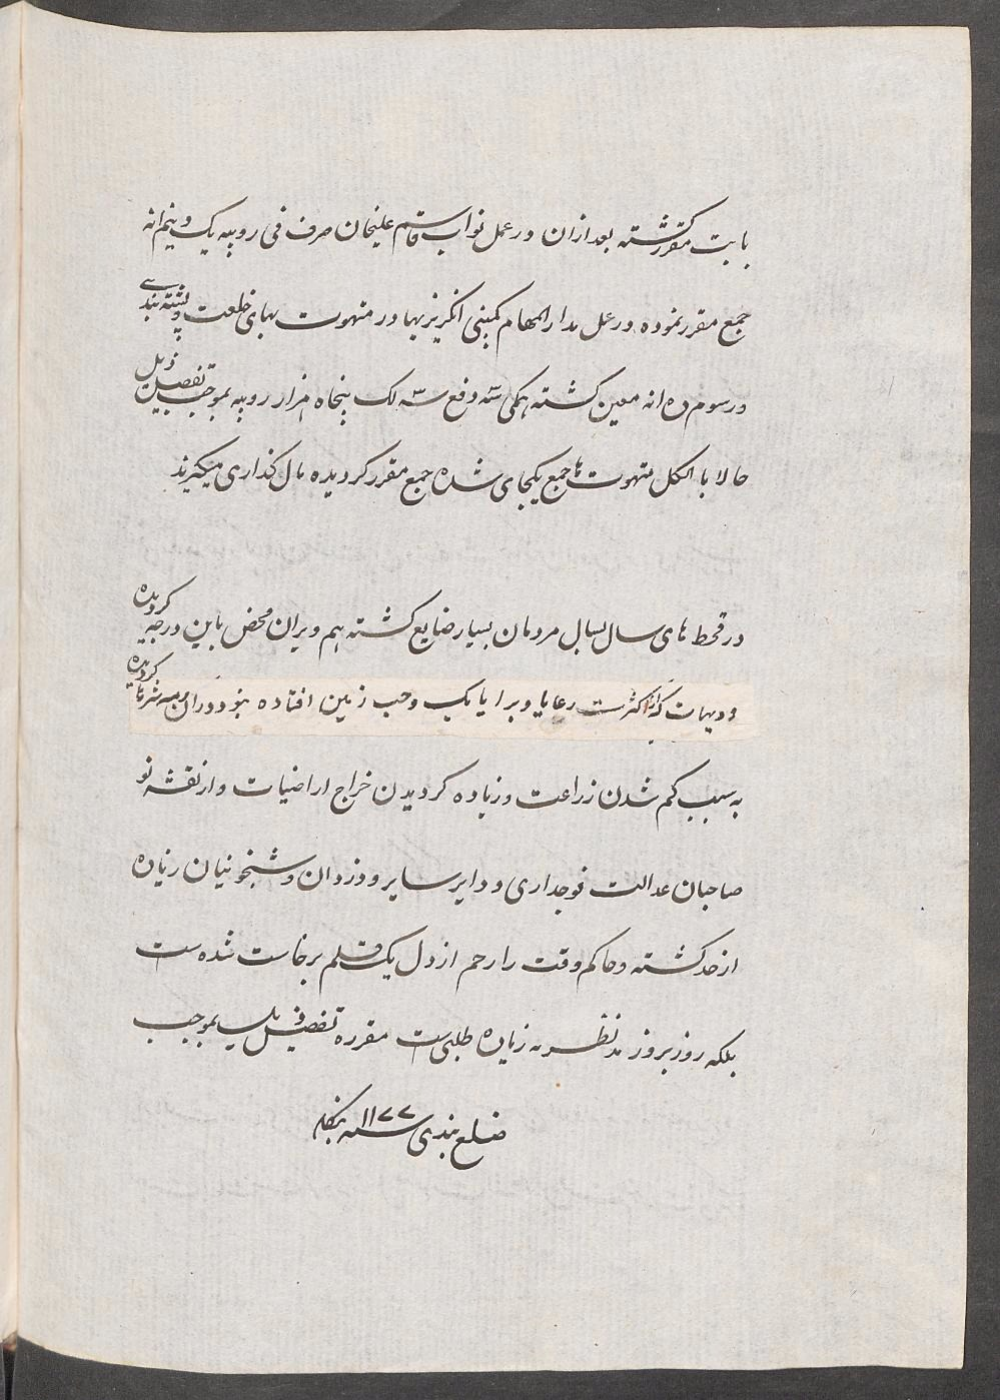 بابت مقرر گشته بعد ازان در عمل نواب قاسم علیخان صرف فی روپیه یک و نیم انه
جمع مقرر نموده در عمل مدارالمهام کمپنی انگریز بهادر منهوت بهای خلعت و پشته بندی
و رسوم ده انه معین گشته همگی سه دفع سه لک پنجاه هزار روپیه بموجب تفصیل ذیل
حالا بالکل منهوت ها جمع یکجای شده جمع مقرر گردیده مال گذاری میگیرند
در قحط های سال بسال مردمان بسیار ضایع گشته هم ویران محض باین درجه گردیده
و دیهات که از کثرت رعایا و برایا یک وجب زمین افتاده نبود دران گردیده
به سبب کم شدن زراعت و زیاده گردیدن خراج اراضیات و از نقشه نو
صاحبان عدالت فوجداری و دایر سایر و دزدان و شبخونیان زیاده
از حد گشته و حاکم وقت را رحم از دل یک قلم برخاست شده ست
بلکه روز بروز مدنظر به زیاده طلبی ست مقرره تفصیل بموجب
ضلع بندی سنه ۱۱۷۷ بنگله